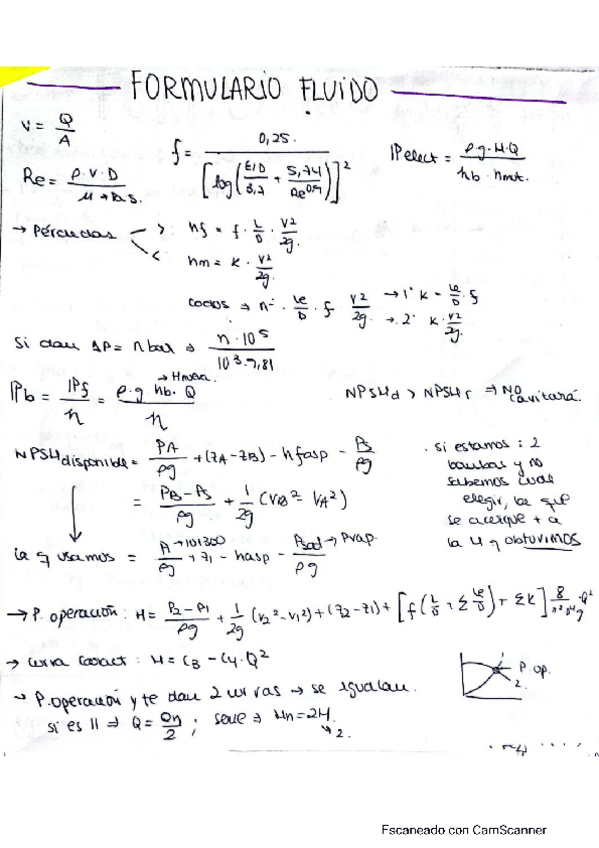 FORMULARIO FLUIDO
V = Q/A
f = 0,25. / [log(E/D / 3,7 + 5,74 / Re^0,9)]^2
IPelect = ρ.g.H.Q / hb. hmt.
Re = ρ.V.D / μ
→ Pérdidas → hf = f. L/D . V2/2g.
hm = K . V2/2g.
codos ⇒ n. Le/D . f. V2/2g. → 1º K = Le/D . f
→ 2º K. V2/2g.
Si dan ΔP = n bar ⇒ n.10^5 / 10^3.9,81
IPb = IPf / n = ρ.g hb. Q / n
NPSHd > NPSHr ⇒ No cavitará.
NPSHdisponible = PA/ρg + (zA - zB) - hfasp - Ps/ρg
= PB - Ps / ρg + 1/2g (VB² - VA²)
. si estamos : 2
bombas y no
sabemos cual
elegir, la que
se acerque + a
la H q obtuvimos
la q usamos = P→101300 / ρg + z1 - hasp - Psat→Pvap. / ρg
→ P. operación : H = P2 - P1 / ρg + 1/2g (V2² - V1²) + (z2 - z1) + [f (L/D + Σ Le/D) + ΣK] 8 / π² D⁴ g . Q²
→ Curva caract : H = C3 - C4.Q²
P.op.
2.
→ P.operación y te dan 2 curvas → se igualan.
si es II ⇒ Q = Qn/2 ; serie ⇒ Hn = 2H.
→ 2.
Escaneado con CamScanner